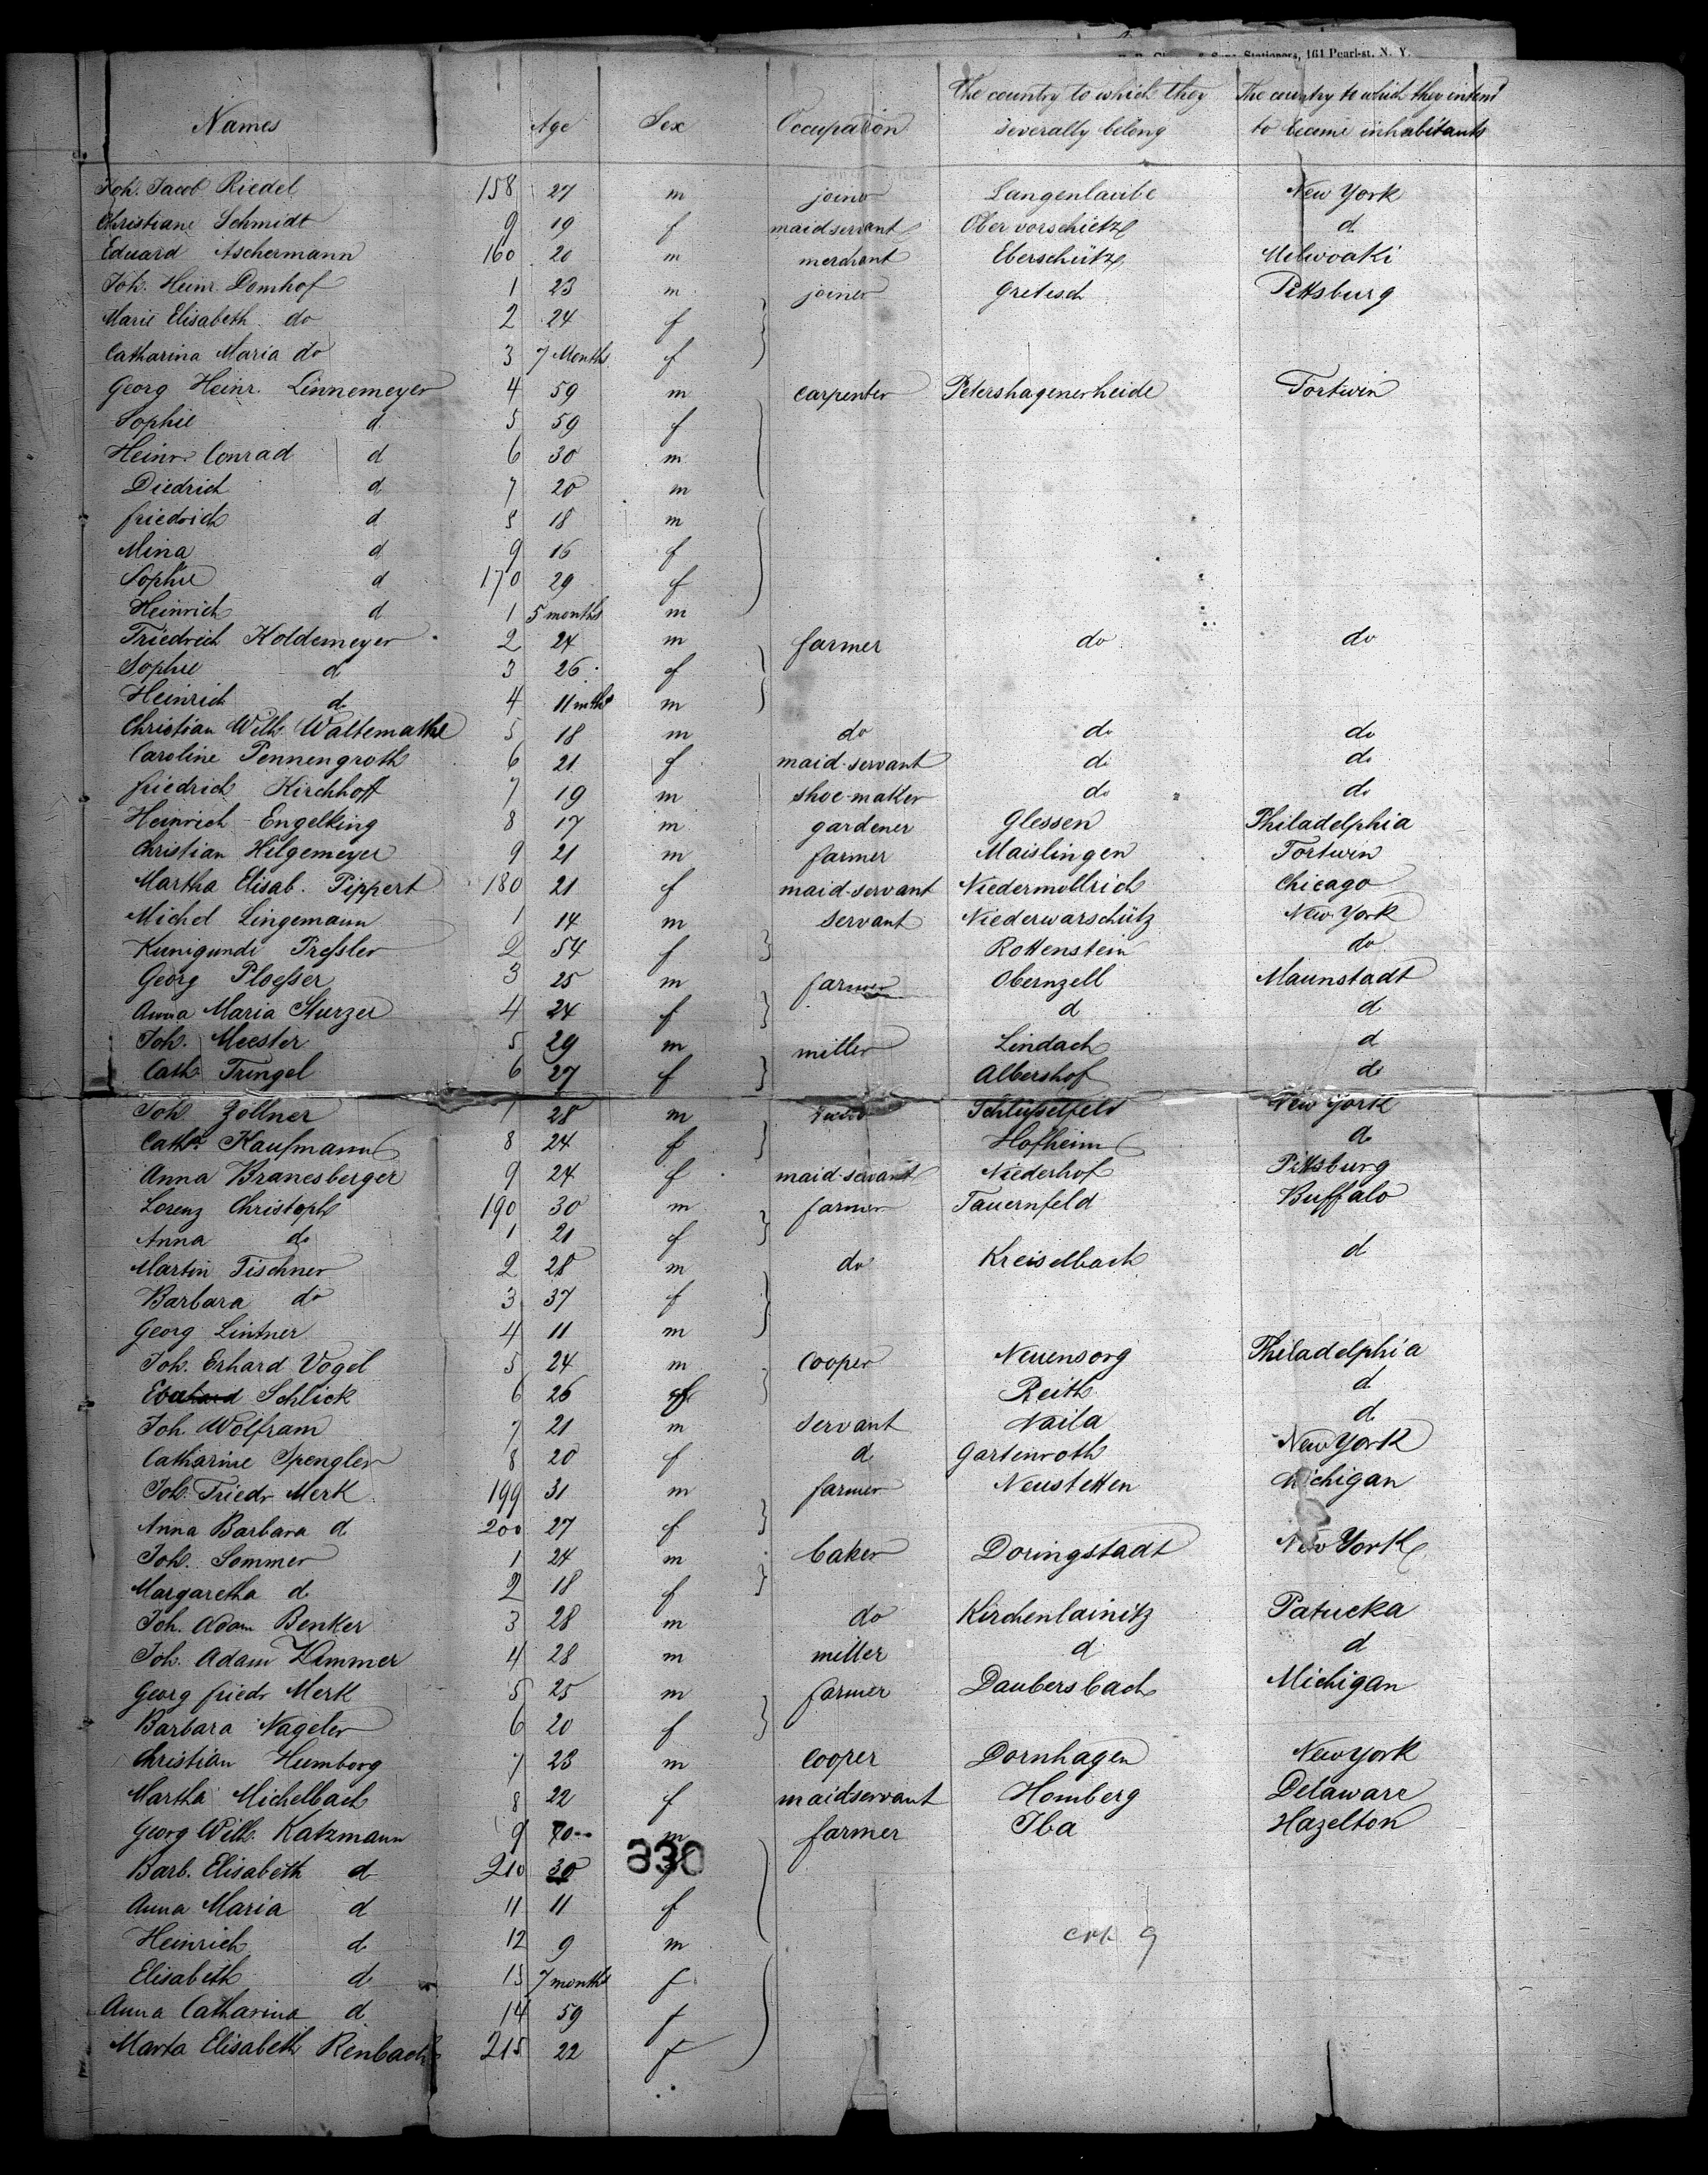 Stationers, 161 Pearl-st. N. Y.
Names Age Sex Occupation The country to which they severally belong The country to which they intend to become inhabitants
Joh. Jacob Riedel 158 27 m joiner Langenlaube New York
Christiane Schmidt 9 19 f maidservant Obervorschietz d
Eduard Aschermann 160 20 m merchant Eberschütz Milwoaki
Joh. Heinr. Domhof 1 23 m joiner Gretesch Pittsburg
Marie Elisabeth do 2 24 f
Catharina Maria do 3 7 Months f
Georg Heinr. Linnemeyer 4 59 m carpenter Petershagenerheide Fortwin
Sophie d 5 59 f
Heinr. Conrad d 6 30 m
Diedrich d 7 20 m
friedrich d 8 18 m
Mina d 9 16 f
Sophie d 170 29 f
Heinrich d 1 5 months m
Friedrich Koldemeyer 2 24 m farmer do do
Sophie d 3 26 f
Heinrich d 4 11 mths m
Christian Wilh. Waltemathe 5 18 m do do do
Caroline Pennengroth 6 21 f maid-servant do do
friedrich Kirchhoff 7 19 m shoe-maker do do
Heinrich Engelking 8 17 m gardener Glessen Philadelphia
Christian Hilgemeyer 9 21 m farmer Maislingen Fortwin
Martha Elisab. Pippert 180 21 f maid-servant Niedermöllrich Chicago
Michel Lingemann 1 14 m servant Niederwarschütz New York
Kunigunde Preßler 2 54 f Rottenstein do
Georg Ploesser 3 25 m farmer Obernzell Maunstadt
Anna Maria Sturzer 4 24 f d d
Joh. Meester 5 29 m miller Lindach d
Cath. Tringel 6 27 f Albershof do
Joh Zöllner 7 28 m Schlüßelfeld New York
Catha Kaufmann 8 24 f Hofheim do
Anna Branesberger 9 24 f maid-servant Niederhof Pittsburg
Lorenz Christoph 190 30 m farmer Tauernfeld Buffalo
Anna do 1 21 f
Martin Tischner 2 28 m do Kreiselbach d
Barbara do 3 37 f
Georg Lintner 4 11 m
Joh. Erhard Vogel 5 24 m Cooper Neuensorg Philadelphia
Eva Schlick 6 26 f Reith d
Joh Wolfram 7 21 m servant Naila d
Catharine Spengler 8 20 f d Gartenroth New York
Joh. Friedr Merk 199 31 m farmer Neustetten Michigan
Anna Barbara d 200 27 f
Joh. Sommer 1 24 m baker Doringstadt New York
Margaretha d 2 18 f
Joh. Adam Benker 3 28 m do Kirchenlainitz Patucka
Joh. Adam Zimmer 4 28 m miller d d
Georg friedr Merk 5 25 m farmer Daubersbach Michigan
Barbara Nageler 6 20 f
Christian Humborg 7 23 m Cooper Dornhagen New York
Martha Michelbach 8 22 f maidservant Homberg Delaware
Georg Wilh. Katzmann 9 m farmer Iba Hazelton
830
Barb. Elisabeth d 210 30
Anna Maria d 11 11 f
Heinrich d 12 9 m
Elisabeth d 13 7 months f
Anna Catharina d 14 59 f
Marta Elisabeth Renbach 215 22 f